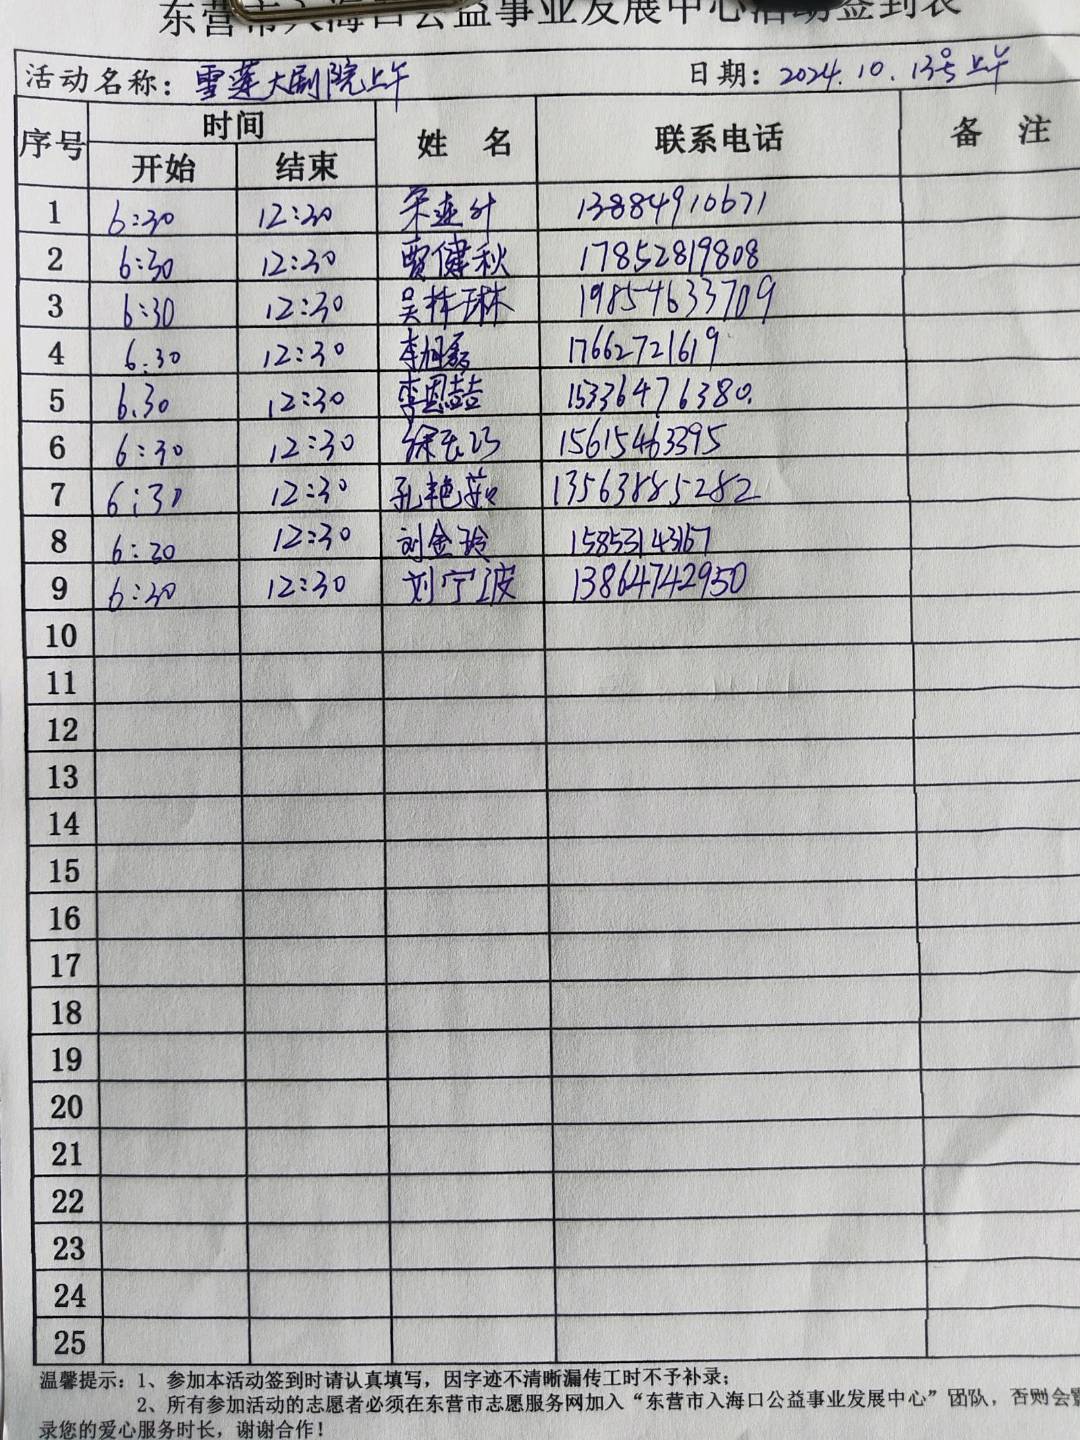 东营市入海口公益事业发展中心活动签到表
活动名称：雪莲大剧院上午 日期：2024.10.13号上午
序号 时间 姓 名 联系电话 备 注
开始 结束
1 6:30 12:30 13884910671
2 6:30 12:30 贾健秋 17852819808
3 6:30 12:30 吴梓琳 19854633709
4 6:30 12:30 李旭磊 17662721619
5 6.30 12:30 李恩喆 15336476380.
6 6:30 12:30 15615463395
7 6:30 12:30 孔艳茹 13563885282
8 6:20 12:30 刘金玲 15853143167
9 6:30 12:30 刘宁波 13864742950
10
11
12
13
14
15
16
17
18
19
20
21
22
23
24
25
温馨提示：1、参加本活动签到时请认真填写，因字迹不清晰漏传工时不予补录；
2、所有参加活动的志愿者必须在东营市志愿服务网加入“东营市入海口公益事业发展中心”团队，否则会
录您的爱心服务时长，谢谢合作！